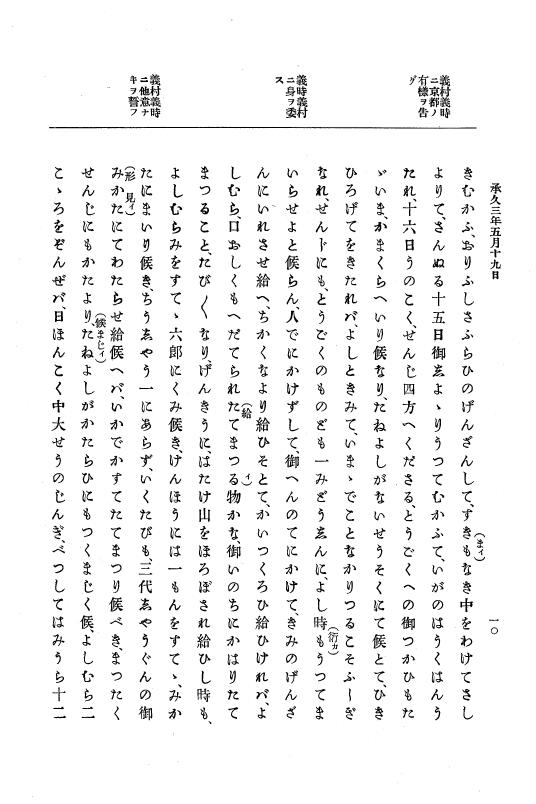 承久三年五月十九日
一〇
義村義時
ニ京都ノ
有樣ヲ告
グ
義時義村
ニ身ヲ委
ス
義村義時
ニ他意ナ
キヲ誓フ
きむかふ、おりふしさふらひのげんざんして、すきもなき中をわけてさし
(まイ)
よりて、さんぬる十五日御ゑよゝりうつてむかふて、いがのはうくはんう
たれ、十六日うのこく、せんじ四方へくださる、とうごくへの御つかひもた
ゞいま、かまくらへいり候なり、たねよしがないせうそくにて候とて、ひき
ひろげてをきたれバ、よしときみて、いまゝでことなかりつるこそふしぎ
なれ、せんドにも、とうごくのものども一みどうゑんに、よし時もうつてま
(衍カ)
いらせよと候らん、人でにかけずして、御へんのてにかけて、きみのげんざ
んにいれさせ給へ、ちかくなより給ひそとて、かいつくろひ給ひけれバ、よ
しむら、口おしくもへだてられたてまつる物かな、御いのちにかはりたて
(給イ)
まつること、たび〱なり、げんきうに、はたけ山をほろぼされ給ひし時も、
よしむらみをすてゝ六郎にくみ候き、けんほうには一もんをすてゝ、みか
たにまいり候き、ちうゑやう一にあらず、いくたびも、三代ゑやうぐんの御
(形見イ)
みかたにてわたらせ給候へバ、いかでかすてたてまつり候べき、まつたく
せんじにもかたより、たねよしがかたらひにもつくまじく候、よしむら二
(候まじイ)
こゝろをぞんぜバ、日ほんこく中大せうのじんぎ、べつしてはみうら十二